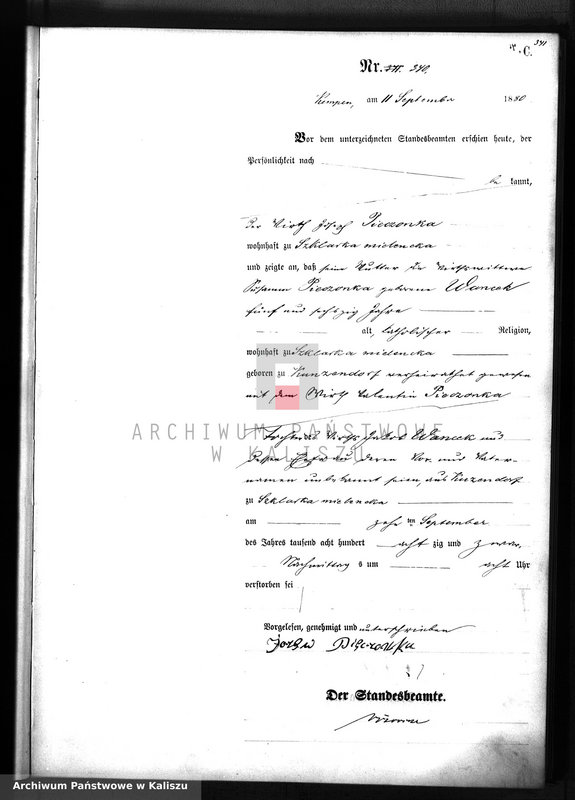 341
C.
Nr. 340.
Kempen, am 11 September 1880
Vor dem unterzeichneten Standesbeamten erschien heute, der
Persönlichkeit nach
be kannt,
der Wirth Joseph Pieczonka
wohnhaft zu Szklarka mielencka
und zeigte an, daß seine Mutter die Wirthswittwe
Susanna Pieczonka geborene Waneck
fünf und sechszig Jahre
alt, katholischer Religion,
wohnhaft zu Szklarka mielencka
geboren zu Kunzendorf verheirathet gewesen
mit dem Wirth Valentin Pieczonka
Tochter des Wirths Jakob Waneck und
dessen Ehefrau deren Vor und Vater-
namen unbekannt seien, aus Kunzendorf
zu Szklarka mielencka
am zehn ten September
des Jahres tausend acht hundert acht zig und zwar,
Nachmittag s um acht Uhr
verstorben sei
Vorgelesen, genehmigt und unterschrieben
Der Standesbeamte.
ARCHIWUM PAŃSTWOWE
W KALISZU
Archiwum Państwowe w Kaliszu